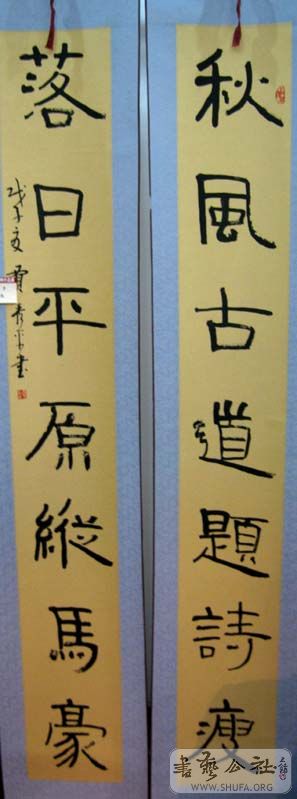 秋風古道題詩瘦
落日平原縱馬豪
戊子夏賈秀平書
書藝公社
WWW.SHUFA.ORG